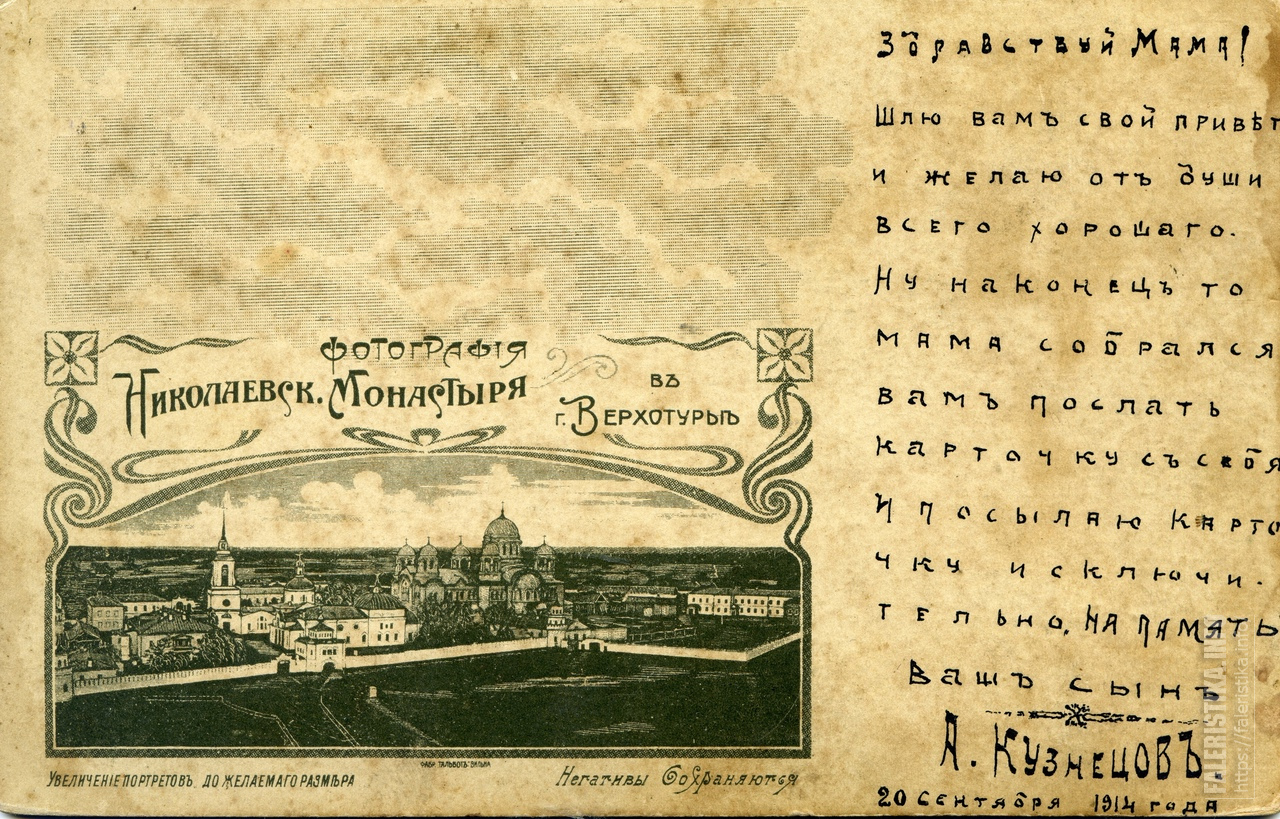 ФОТОГРАФIЯ
НИКОЛАЕВСК. МОНАСТЫРЯ
ВЪ
Г. ВЕРХОТУРЬѢ
ФАБР. ТАЛЬБОТЪ ВИЛЬНА
УВЕЛИЧЕНIЕ ПОРТРЕТОВЪ ДО ЖЕЛАЕМАГО РАЗМѢРА
Негативы Сохраняются
Здравствуй Мама!
Шлю вамъ свой привѣт
и желаю отъ души
всего хорошаго.
Ну наконецъ то
мама собрался
вамъ послать
карточку съ себя
И посылаю карто
чку исключи-
тельно, НА ПАМЯТЬ
Вашъ сынъ
А. КУЗНЕЦОВЪ.
20 сентября 1914 года
FALERISTIKA.INFO
https://faleristika.info